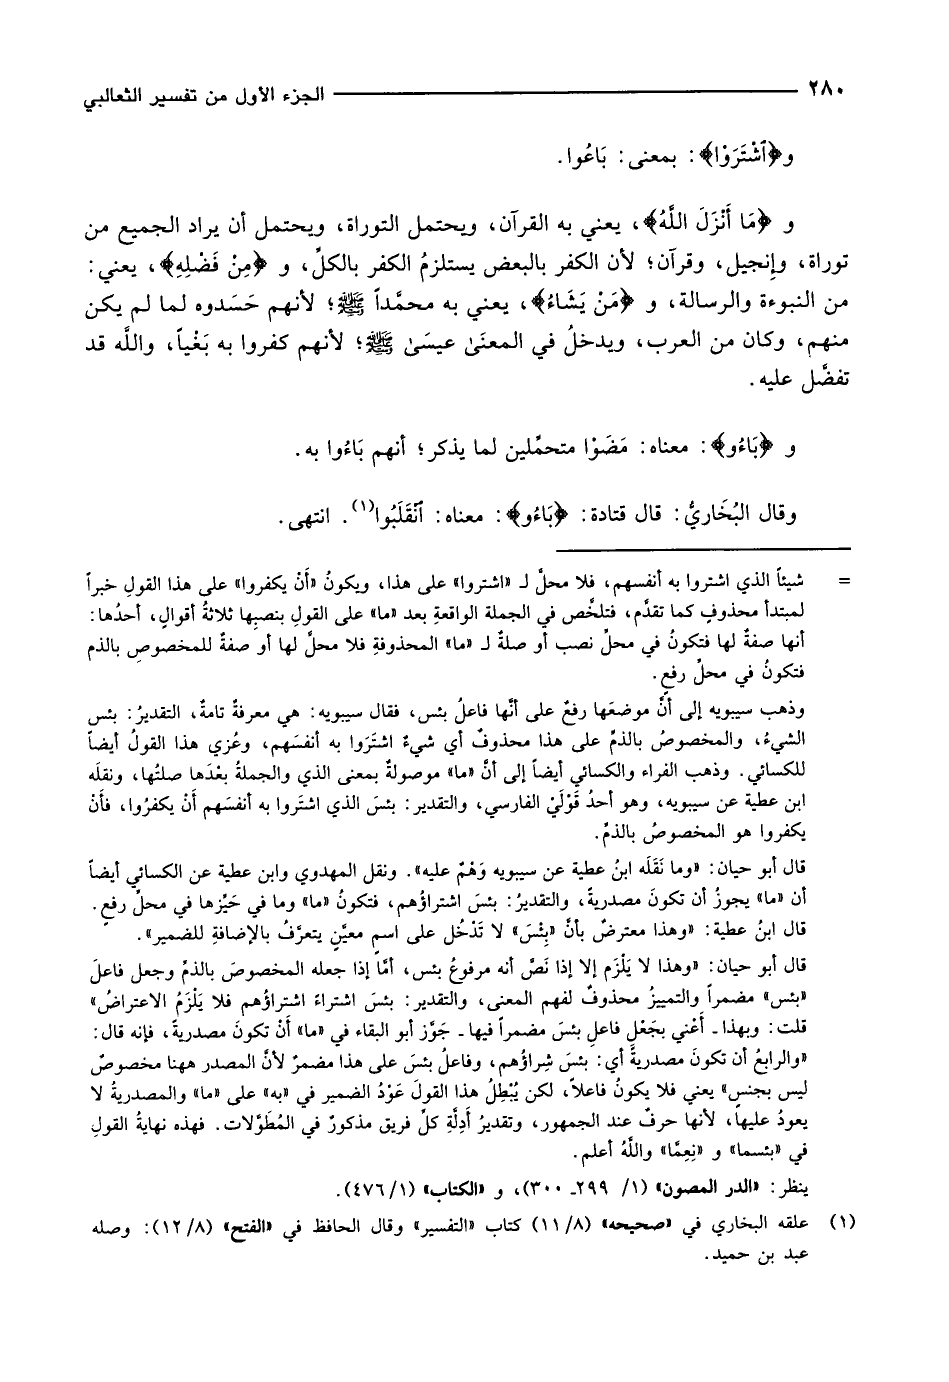 ٢٨٠ الجزء الأول من تفسير الثعالبي
و﴿ٱشْتَرَوْا﴾: بمعنى: بَاعُوا.
و ﴿مَا أَنْزَلَ اللَّهُ﴾، يعني به القرآن، ويحتمل التوراة، ويحتمل أن يراد الجميع من
توراة، وإنجيل، وقرآن؛ لأن الكفر بالبعض يستلزمُ الكفر بالكلِّ، و ﴿مِنْ فَضْلِهِ﴾، يعني:
من النبوءة والرسالة، و ﴿مَنْ يَشَاءُ﴾، يعني به محمَّداً ﷺ؛ لأنهم حَسَدوه لما لم يكن
منهم، وكان من العرب، ويدخلُ في المعنَىٰ عيسَىٰ ﷺ؛ لأنهم كفروا به بَغْياً، واللَّه قد
تفضَّل عليه.
و ﴿بَاءُو﴾: معناه: مَضَوْا متحمِّلين لما يذكر؛ أنهم بَاءُوا به.
وقال البُخَاريُّ: قال قتادة: ﴿بَاءُو﴾: معناه: ٱنْقَلَبُوا(١). انتهى.
= شيئاً الذي اشتروا به أنفسهم، فلا محلَّ لـ «اشتروا» على هذا، ويكونُ «أَنْ يكفروا» على هذا القولِ خبراً
لمبتدأ محذوفٍ كما تقدَّم، فتلخَّص في الجملة الواقعةِ بعد «ما» على القولِ بنصبِها ثلاثةُ أقوالٍ، أحدُها:
أنها صفةٌ لها فتكونُ في محلِّ نصب أو صلةٌ لـ «ما» المحذوفةِ فلا محلَّ لها أو صفةٌ للمخصوصِ بالذم
فتكونُ في محلِّ رفعٍ.
وذهب سيبويه إلى أنَّ موضعَها رفعٌ على أنَّها فاعلُ بئس، فقال سيبويه: هي معرفةٌ تامةٌ، التقديرُ: بئس
الشيءُ، والمخصوصُ بالذمِّ على هذا محذوفٌ أي شيءٌ اشتَرَوا به أنفسَهم، وعُزي هذا القولُ أيضاً
للكسائي. وذهب الفراء والكسائي أيضاً إلى أنَّ «ما» موصولةٌ بمعنى الذي والجملةُ بعْدَها صلتُها، ونقلَه
ابن عطية عن سيبويه، وهو أحدُ قَوْلَيْ الفارسي، والتقدير: بئسَ الذي اشتَروا به أنفسَهم أَنْ يكفرُوا، فأَنْ
يكفروا هو المخصوصُ بالذمِّ.
قال أبو حيان: «وما نَقَلَه ابنُ عطية عن سيبويه وَهْمٌ عليه». ونقل المهدوي وابن عطية عن الكسائي أيضاً
أن «ما» يجوزُ أن تكونَ مصدريةً، والتقديرُ: بئسَ اشتراؤُهم، فتكونُ «ما» وما في حَيِّزها في محلِّ رفعٍ.
قال ابنُ عطية: «وهذا معترضٌ بأنَّ «بِئْسَ» لا تَدْخُل على اسمٍ معيَّنٍ يتعرَّفُ بالإضافةِ للضميرِ».
قال أبو حيان: «وهذا لا يَلْزَم إلا إذا نَصَّ أنه مرفوعُ بئس، أمَّا إذا جعله المخصوصَ بالذمِّ وجعل فاعلَ
«بئس» مضمراً والتمييزُ محذوفٌ لفهم المعنى، والتقدير: بئسَ اشتراءً اشتراؤُهم فلا يَلْزَمُ الاعتراضُ»
قلت: وبهذا ـ أَعْني بجَعْلِ فاعلِ بئسَ مضمراً فيها ـ جَوَّز أبو البقاء في «ما» أَنْ تكونَ مصدريةً، فإنه قال:
«والرابعُ أن تكونَ مصدريةً أي: بئسَ شِراؤُهم، وفاعلُ بئسَ على هذا مضمرٌ لأنَّ المصدر ههنا مخصوصٌ
ليس بجنس» يعني فلا يكونُ فاعلاً، لكن يُبْطِلُ هذا القولَ عَوْدُ الضمير في «به» على «ما» والمصدريةُ لا
يعودُ عليها، لأنها حرفٌ عند الجمهور، وتقديرُ أَدِلَّةِ كلِّ فريق مذكورٌ في المُطَوَّلات. فهذه نهايةُ القولِ
في «بئسما» و «نِعِمَّا» واللَّهُ أعلم.
ينظر: «الدر المصون» (١/ ٢٩٩ـ ٣٠٠)، و «الكتاب» (٤٧٦/١).
(١) علقه البخاري في «صحيحه» (١١/٨) كتاب «التفسير» وقال الحافظ في «الفتح» (١٢/٨): وصله
عبد بن حميد.